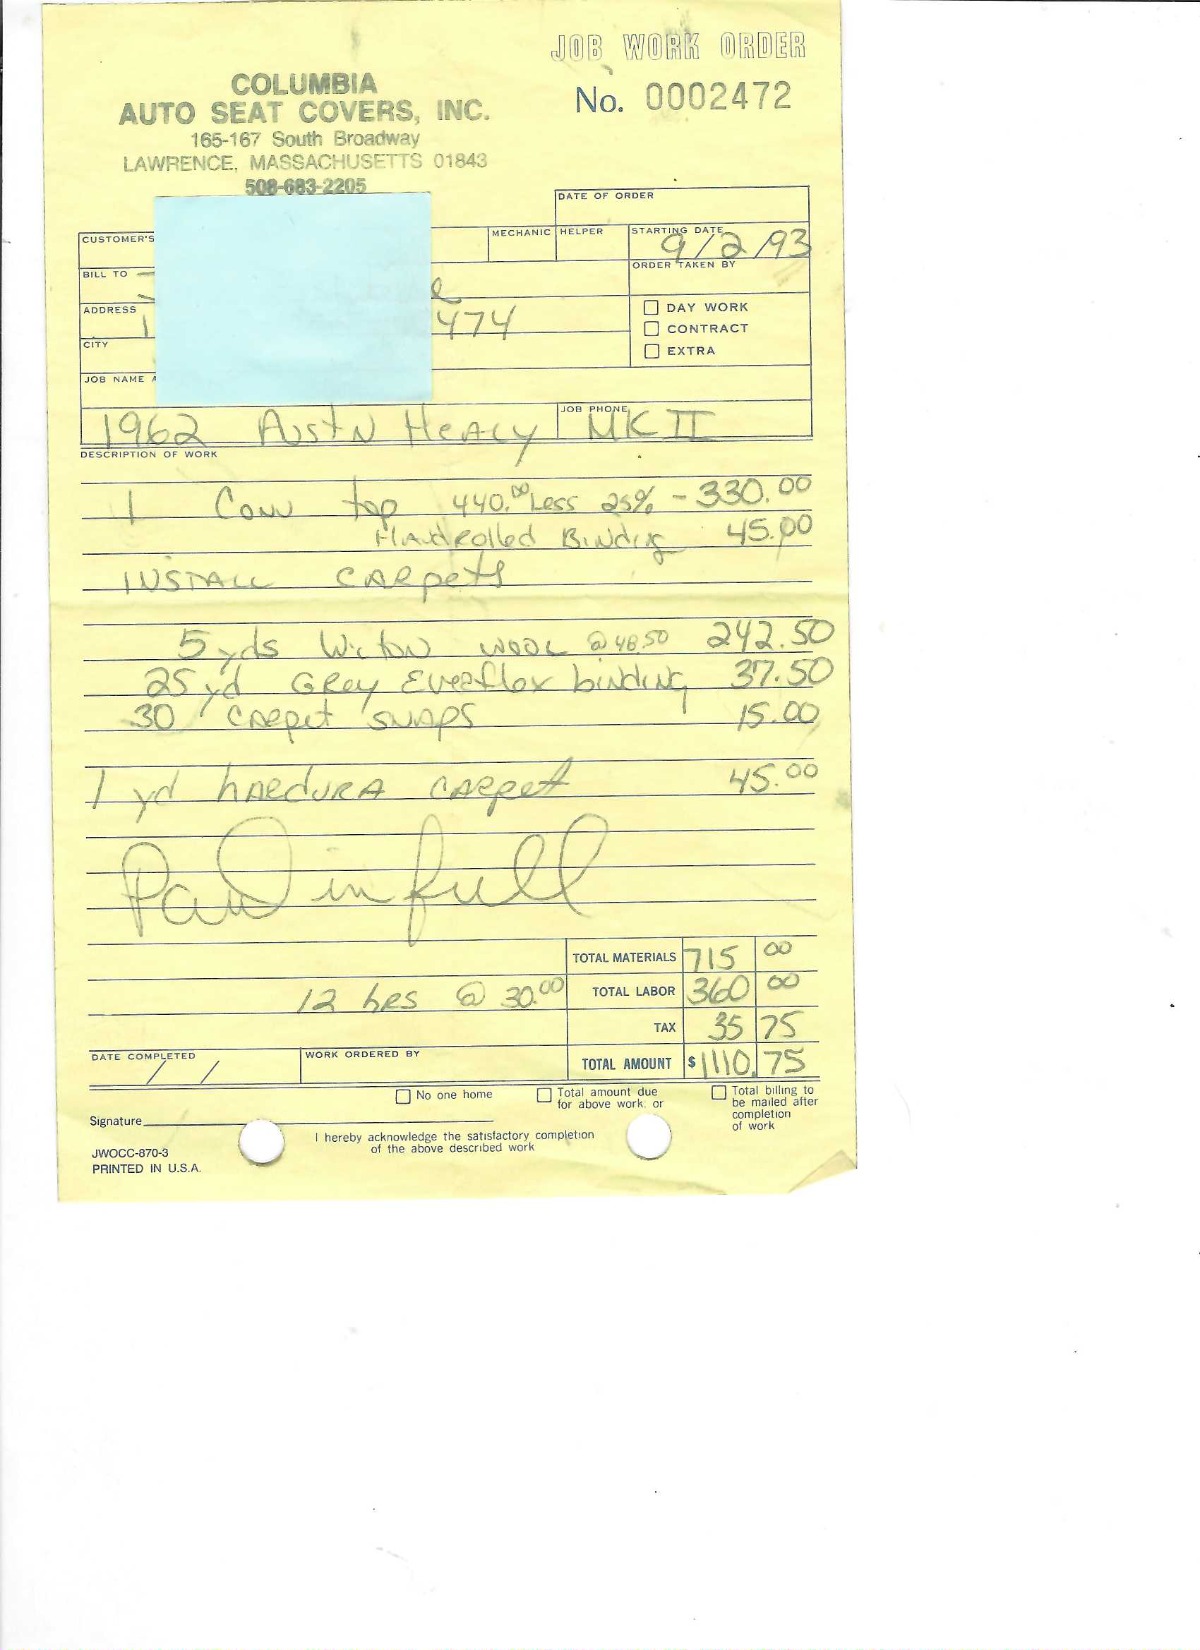 JOB WORK ORDER
No. 0002472
COLUMBIA
AUTO SEAT COVERS, INC.
165-167 South Broadway
LAWRENCE, MASSACHUSETTS 01843
508-683-2205
DATE OF ORDER
CUSTOMER'S
MECHANIC HELPER STARTING DATE 9/2/93
BILL TO
ORDER TAKEN BY
ADDRESS 474
DAY WORK
CONTRACT
CITY
EXTRA
JOB NAME
JOB PHONE
1962 AustN HEALY MK II
DESCRIPTION OF WORK
1 CONV top 440.00 Less 25% - 330.00
HANdRolled BiNdiNg 45.00
INSTALL CARpets
5 yds Wilton WOOL @ 48.50 242.50
25 yd GRey Everflex biNdiNg 37.50
30 CARpet SNAPS 15.00
1 yd hARduRA CARpet 45.00
Paid in full
TOTAL MATERIALS 715 00
12 hrs @ 30.00 TOTAL LABOR 360 00
TAX 35 75
DATE COMPLETED / / WORK ORDERED BY TOTAL AMOUNT $ 1110.75
No one home
Total amount due
for above work: or
Total billing to
be mailed after
completion
of work
Signature
I hereby acknowledge the satisfactory completion
of the above described work
JWOCC-870-3
PRINTED IN U.S.A.